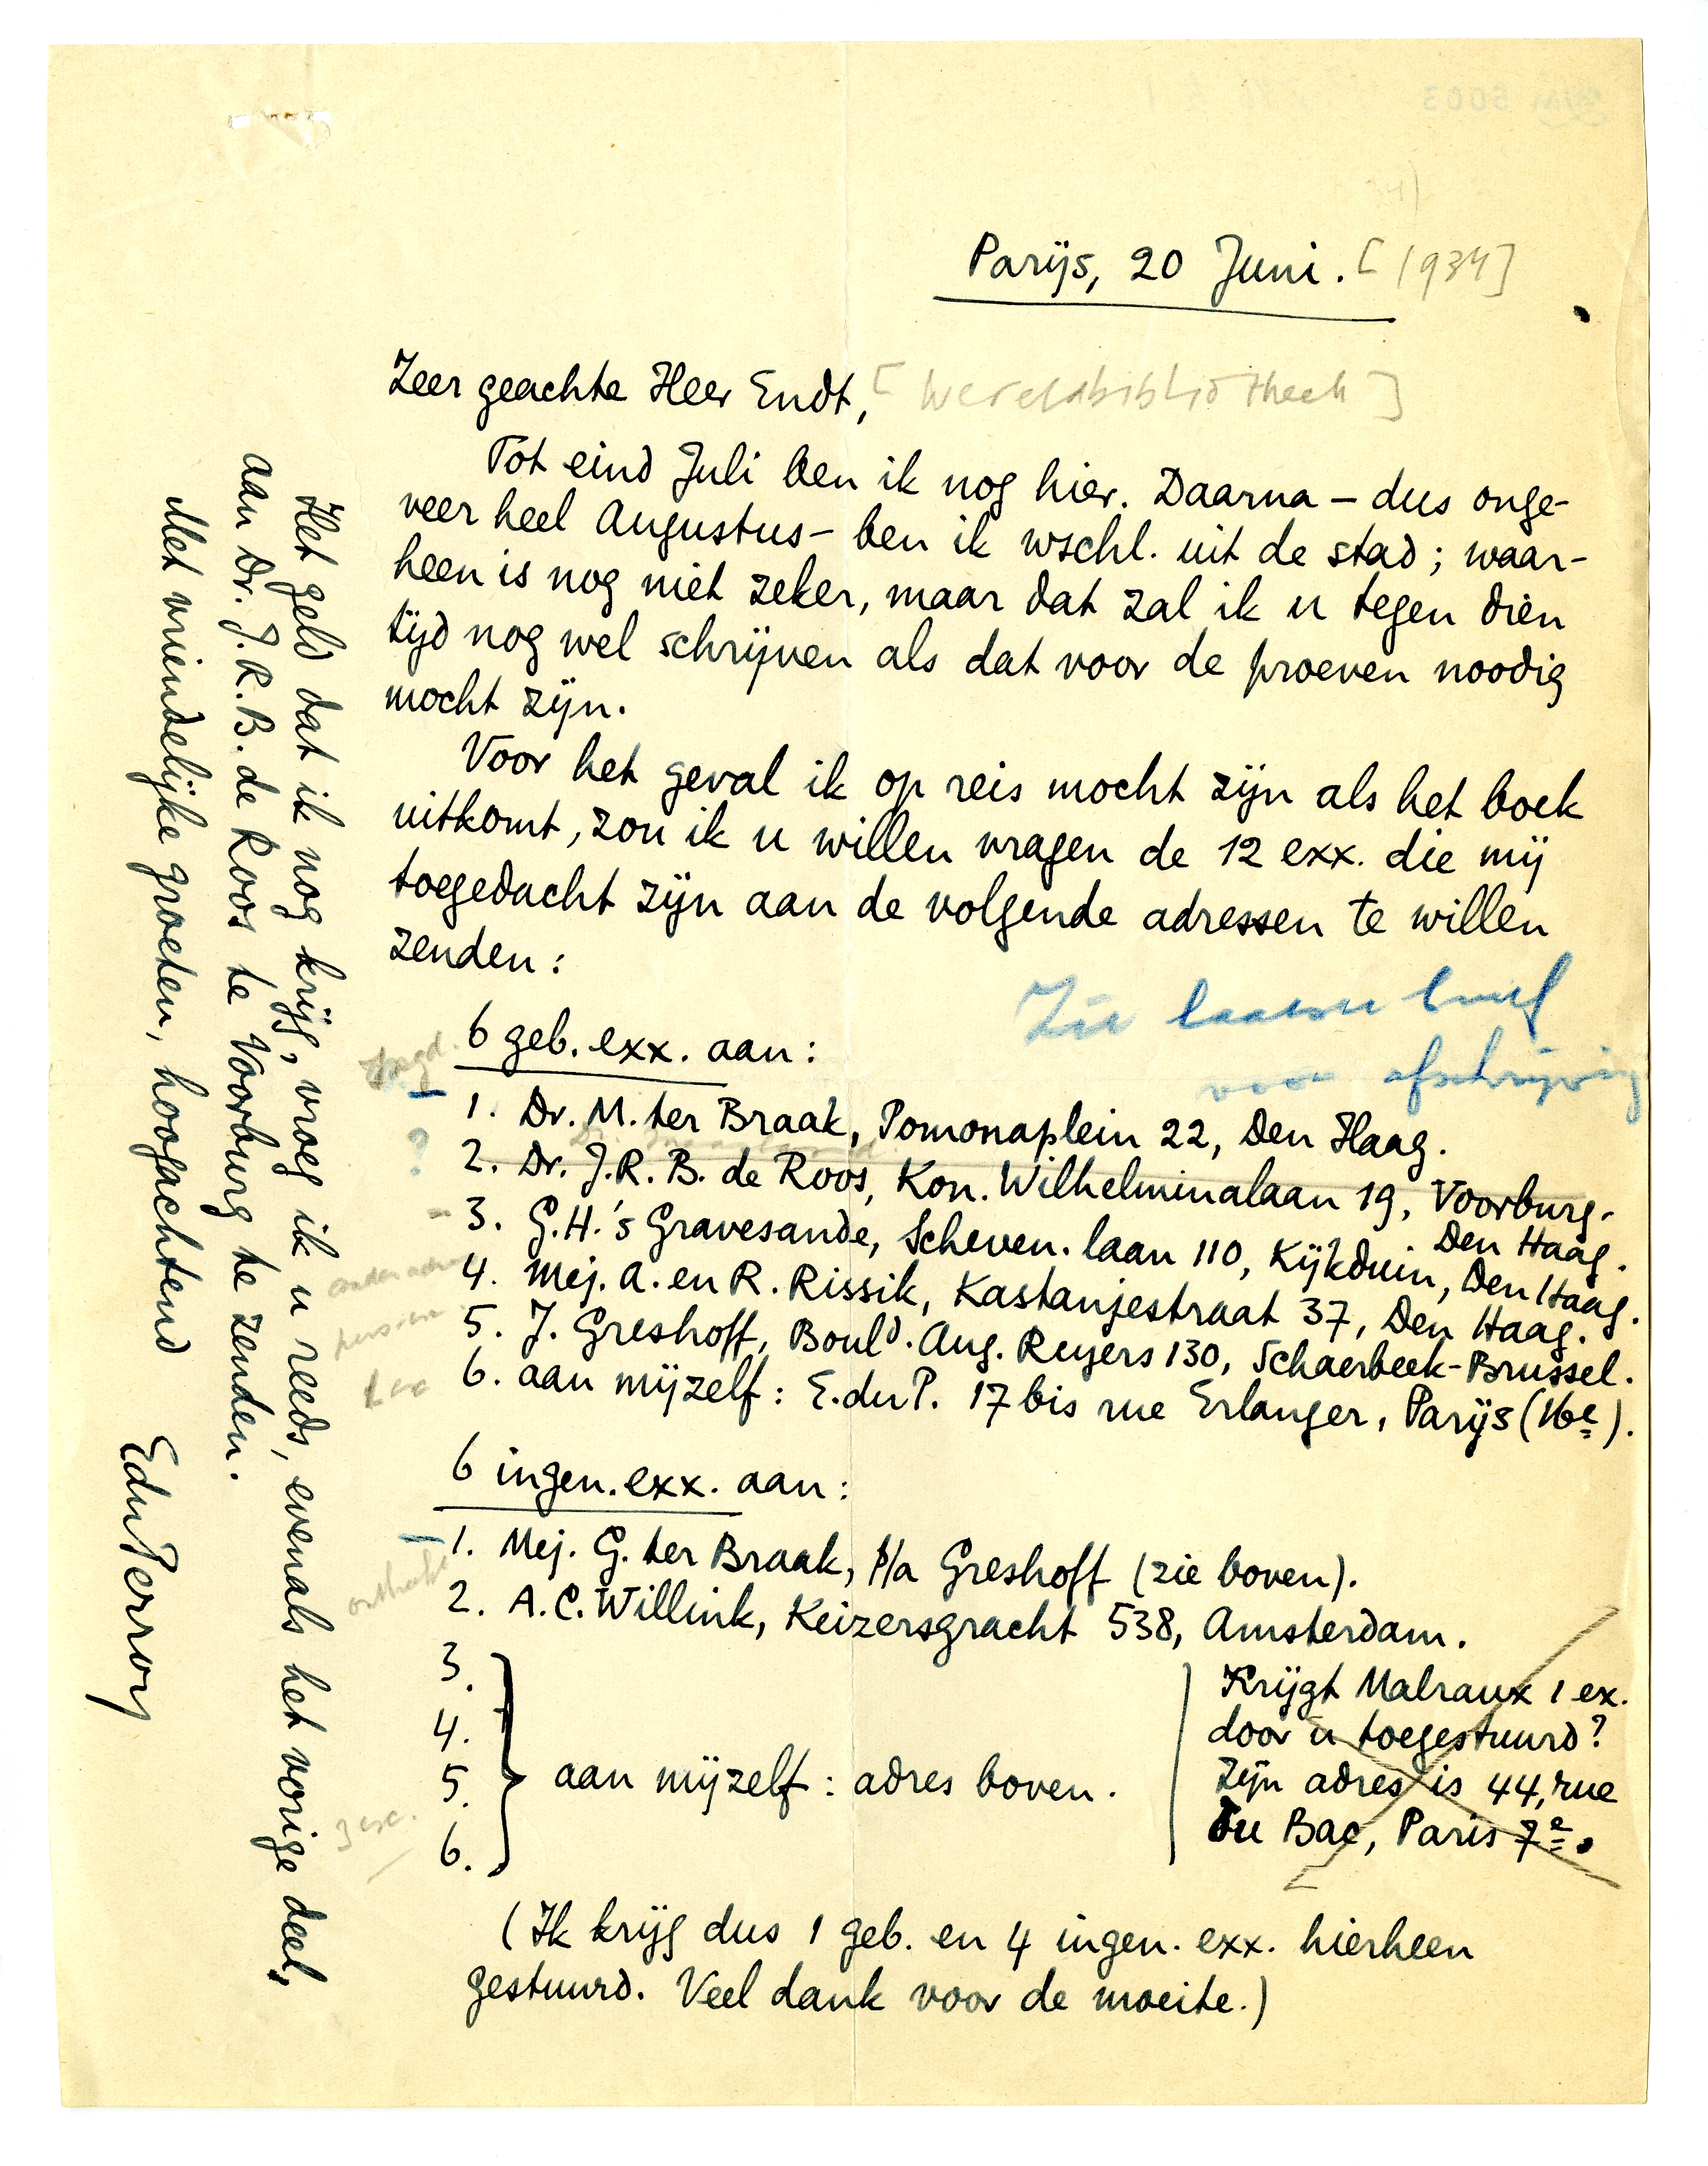 Parijs, 20 Juni. [1934]
Zeer geachte Heer Endt, [Wereldbibliotheek]
Tot eind Juli ben ik nog hier. Daarna – dus onge-
veer heel Augustus – ben ik wschl. uit de stad; waar-
heen is nog niet zeker, maar dat zal ik u tegen dien
tijd nog wel schrijven als dat voor de proeven noodig
mocht zijn.
Voor het geval ik op reis mocht zijn als het boek
uitkomt, zou ik u willen vragen de 12 exx. die mij
toegedacht zijn aan de volgende adressen te willen
zenden:
Zie brief
voor afschrijving
6 geb. exx. aan:
1. Dr. M. ter Braak, Pomonaplein 22, Den Haag.
? 2. Dr. J.R.B. de Roos, Kon. Wilhelminalaan 19, Voorburg-
Den Haag.
3. G.H. 's Gravesande, Scheven. laan 110, Kijkduin, Den Haag.
4. Mej. A. en R. Rissik, Kastanjestraat 37, Den Haag.
5. J. Greshoff, Bould. Aug. Reyers 130, Schaerbeek-Brussel.
6. aan mijzelf: E. du P. 17 bis rue Erlanger, Parijs (16e).
6 ingen. exx. aan:
1. Mej. G. ter Braak, p/a Greshoff (zie boven).
2. A.C. Willink, Keizersgracht 538, Amsterdam.
3.
4.
5.
6.
aan mijzelf: adres boven.
Krijgt Malraux 1 ex.
door u toegestuurd?
Zijn adres is 44, rue
du Bac, Paris 7e.
(Ik krijg dus 1 geb. en 4 ingen. exx. hierheen
gestuurd. Veel dank voor de moeite.)
Het geld dat ik nog krijg, vroeg ik u reeds, evenals het vorige deel,
aan Dr. J.R.B. de Roos te Voorburg te zenden.
Met vriendelijke groeten, hoogachtend
EduPerron